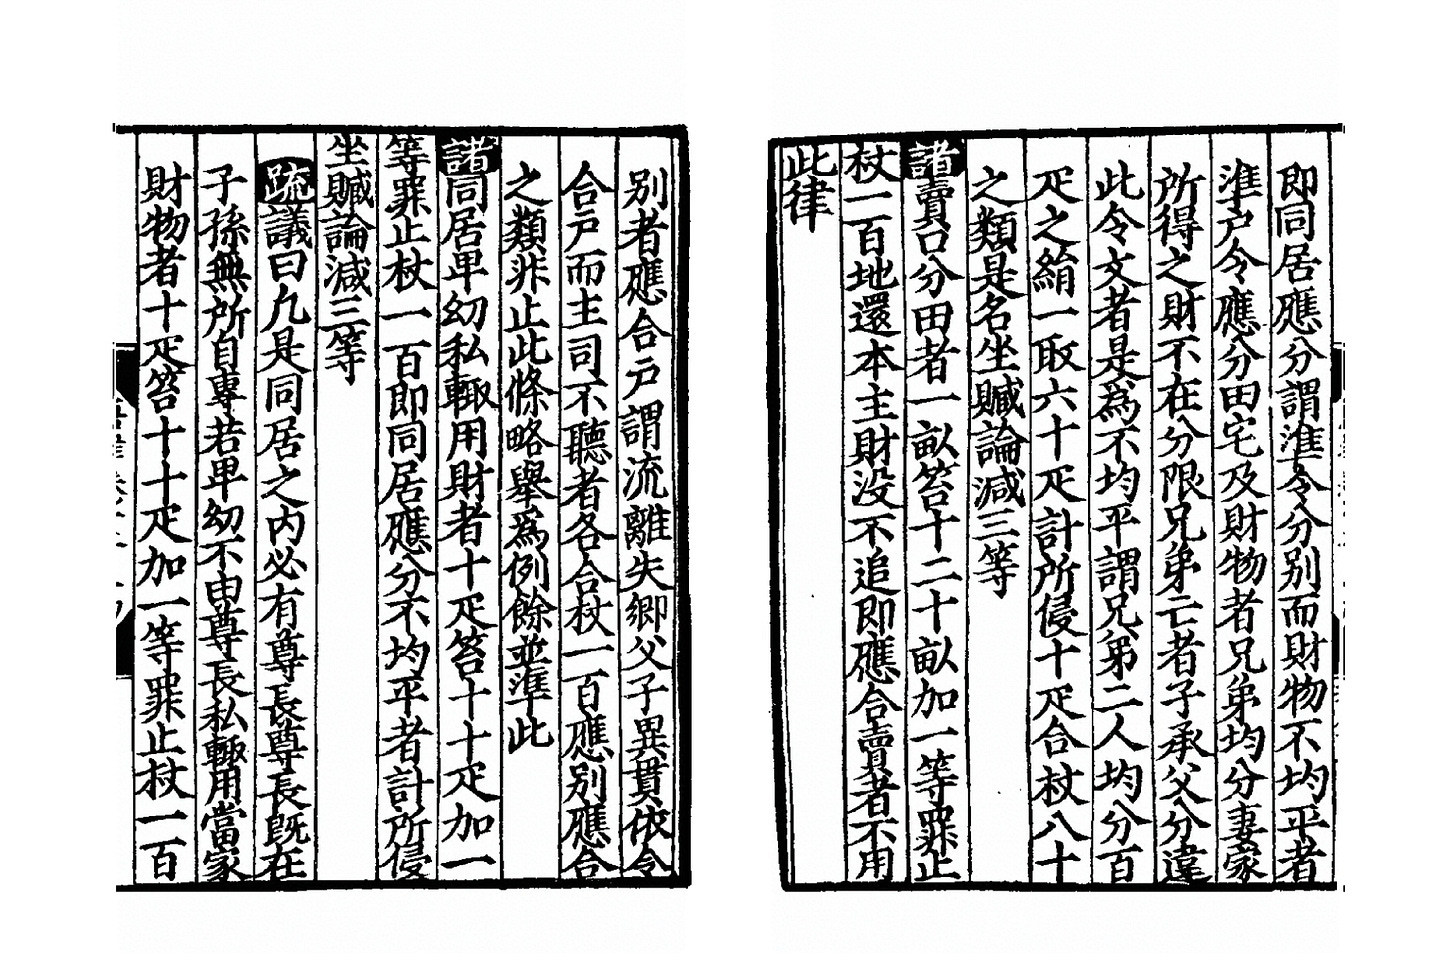 别者應合戶謂流離失鄉父子異貫依令
合戶而主司不聽者各合杖一百應别應合
之類非止此條略舉爲例餘並準此
諸同居卑幼私輒用財者十疋笞十十疋加一
等罪止杖一百即同居應分不均平者計所侵
坐贓論減三等
疏議曰凡是同居之内必有尊長尊長既在
子孫無所自專若卑幼不由尊長私輒用當家
財物者十疋笞十十疋加一等罪止杖一百
即同居應分謂準令分别而財物不均平者
準戶令應分田宅及財物者兄弟均分妻家
所得之財不在分限兄弟亡者子承父分違
此令文者是爲不均平謂兄弟二人均分百
疋之絹一取六十疋計所侵十疋合杖八十
之類是名坐贓論減三等
諸賣口分田者一畝笞十二十畝加一等罪止
杖一百地還本主財没不追即應合賣者不用
此律